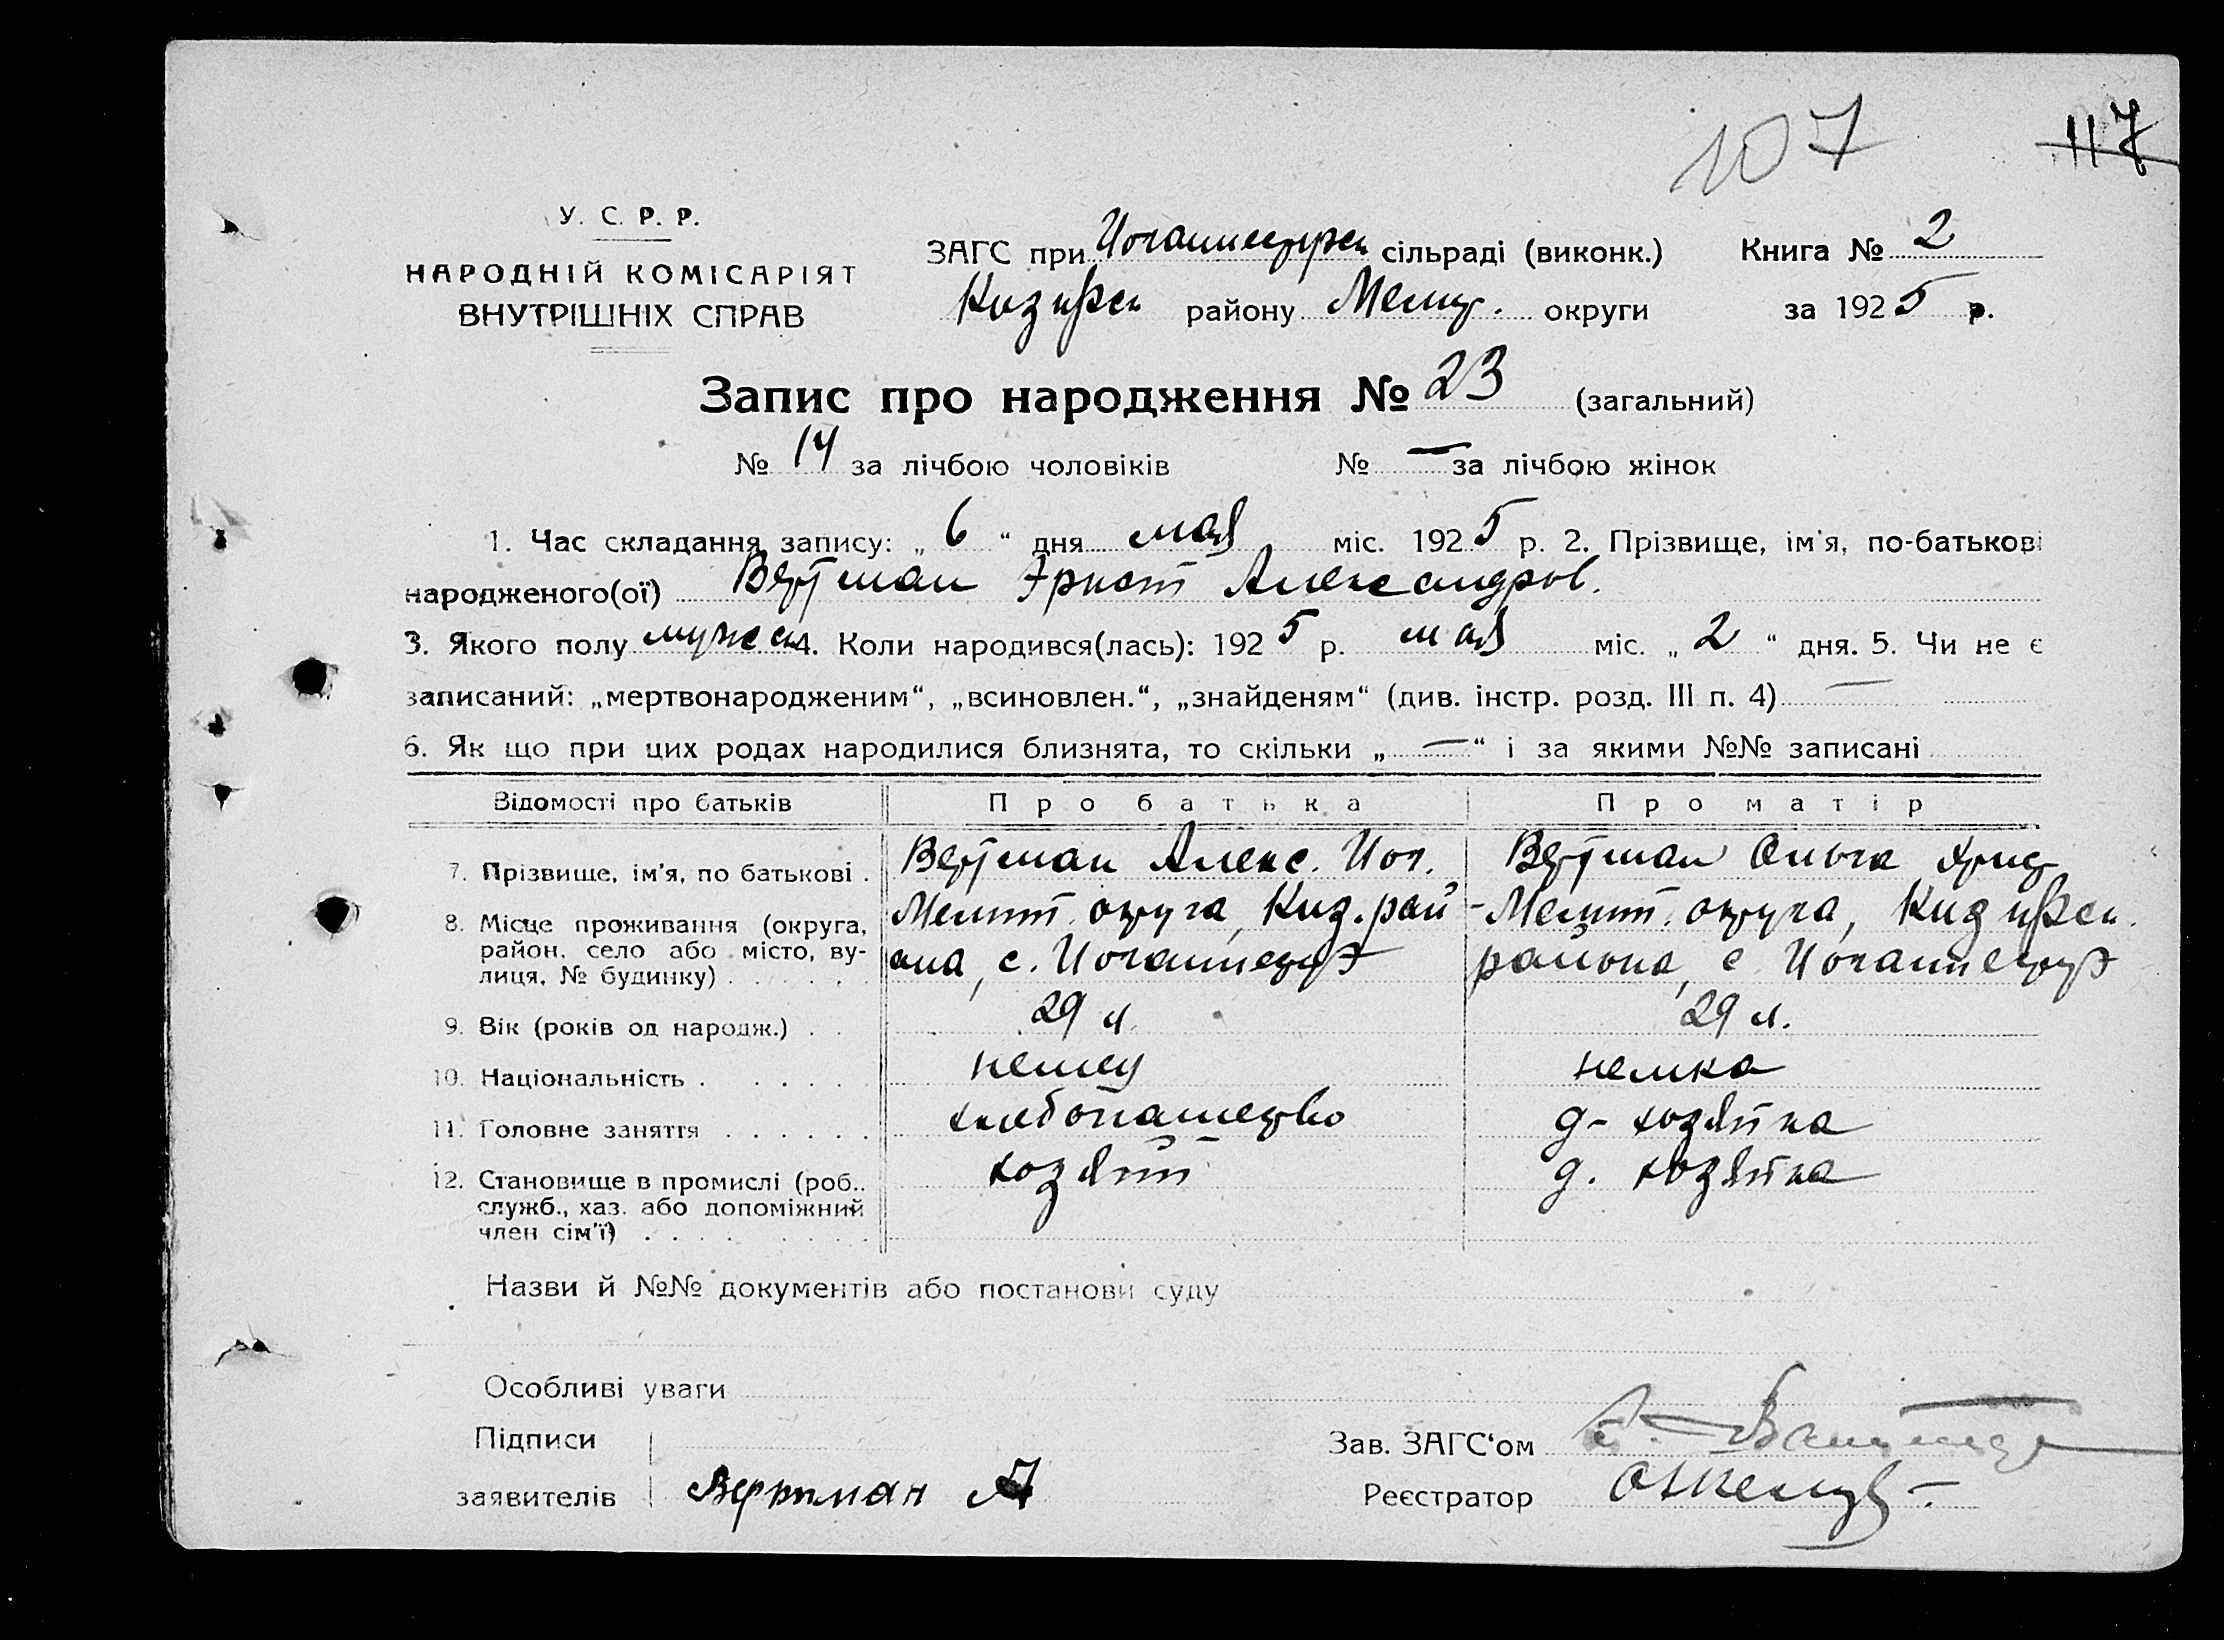 107 117
У. С. Р. Р.
НАРОДНІЙ КОМІСАРІЯТ
ВНУТРІШНІХ СПРАВ
ЗАГС при сільраді (виконк.) Книга № 2
району округи за 1925 р.
Запис про народження № 23 (загальний)
№ 14 за лічбою чоловіків № — за лічбою жінок
1. Час складання запису: „ 6 “ дня мая міс. 1925 р. 2. Прізвище, ім'я, по-батькові
народженого(ої) Вертман Эрнст Александров.
3. Якого полу мужск 4. Коли народився(лась): 1925 р. мая міс. „ 2 “ дня. 5. Чи не є
записаний: „мертвонародженим“, „всиновлен.“, „знайденям“ (див. інстр. розд. III п. 4) —
6. Як що при цих родах народилися близнята, то скільки „ — “ і за якими №№ записані
Відомості про батьків Про батька Про матір
7. Прізвище, ім'я, по батькові . Вертман Алекс. Иог. Вертман Ольга
8. Місце проживання (округа, район, село або місто, вулиця, № будинку) . . . . . .
Мелит. округа, Киз. рай-
она, с. Иоганнесру
Мелит. округа,
района, с. Иоганнесру
9. Вік (років од народж.) . . 29 л. 29 л.
10. Національність . . . . . немец немка
11. Головне заняття . . . . . . хлебопашество д-хозяйка
12. Становище в промислі (роб., служб., хаз. або допоміжний член сім'ї) . . . . . . . . хозяин д. хозяйка
Назви й №№ документів або постанови суду
Особливі уваги
Підписи
заявителів Вертман А
Зав. ЗАГС‘ом
Реєстратор